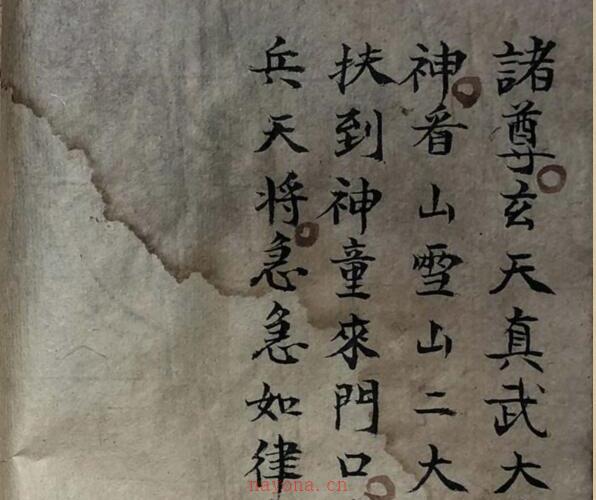 諸尊玄天真武大
神看山雪山二大
扶到神童來門口
兵天将急急如律
nayona.cn